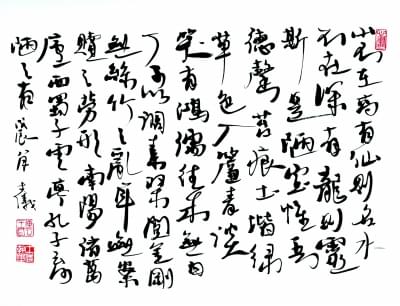 山不在高有仙則名水
不在深有龍則靈
斯是陋室惟吾
德馨苔痕上階綠
草色入簾青談
笑有鴻儒往來無白
丁可以調素琴閱金剛
無絲竹之亂耳無案
牘之勞形南陽諸葛
廬西蜀子雲亭孔子云何
陋之有